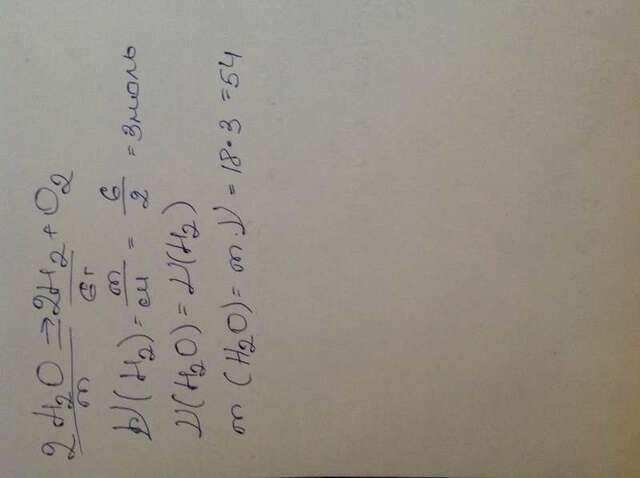 2H₂O = 2H₂ + O₂
m 6г
ν(H₂) = m/M = 6/2 = 3 моль
ν(H₂O) = ν(H₂)
m(H₂O) = m·ν = 18·3 = 54